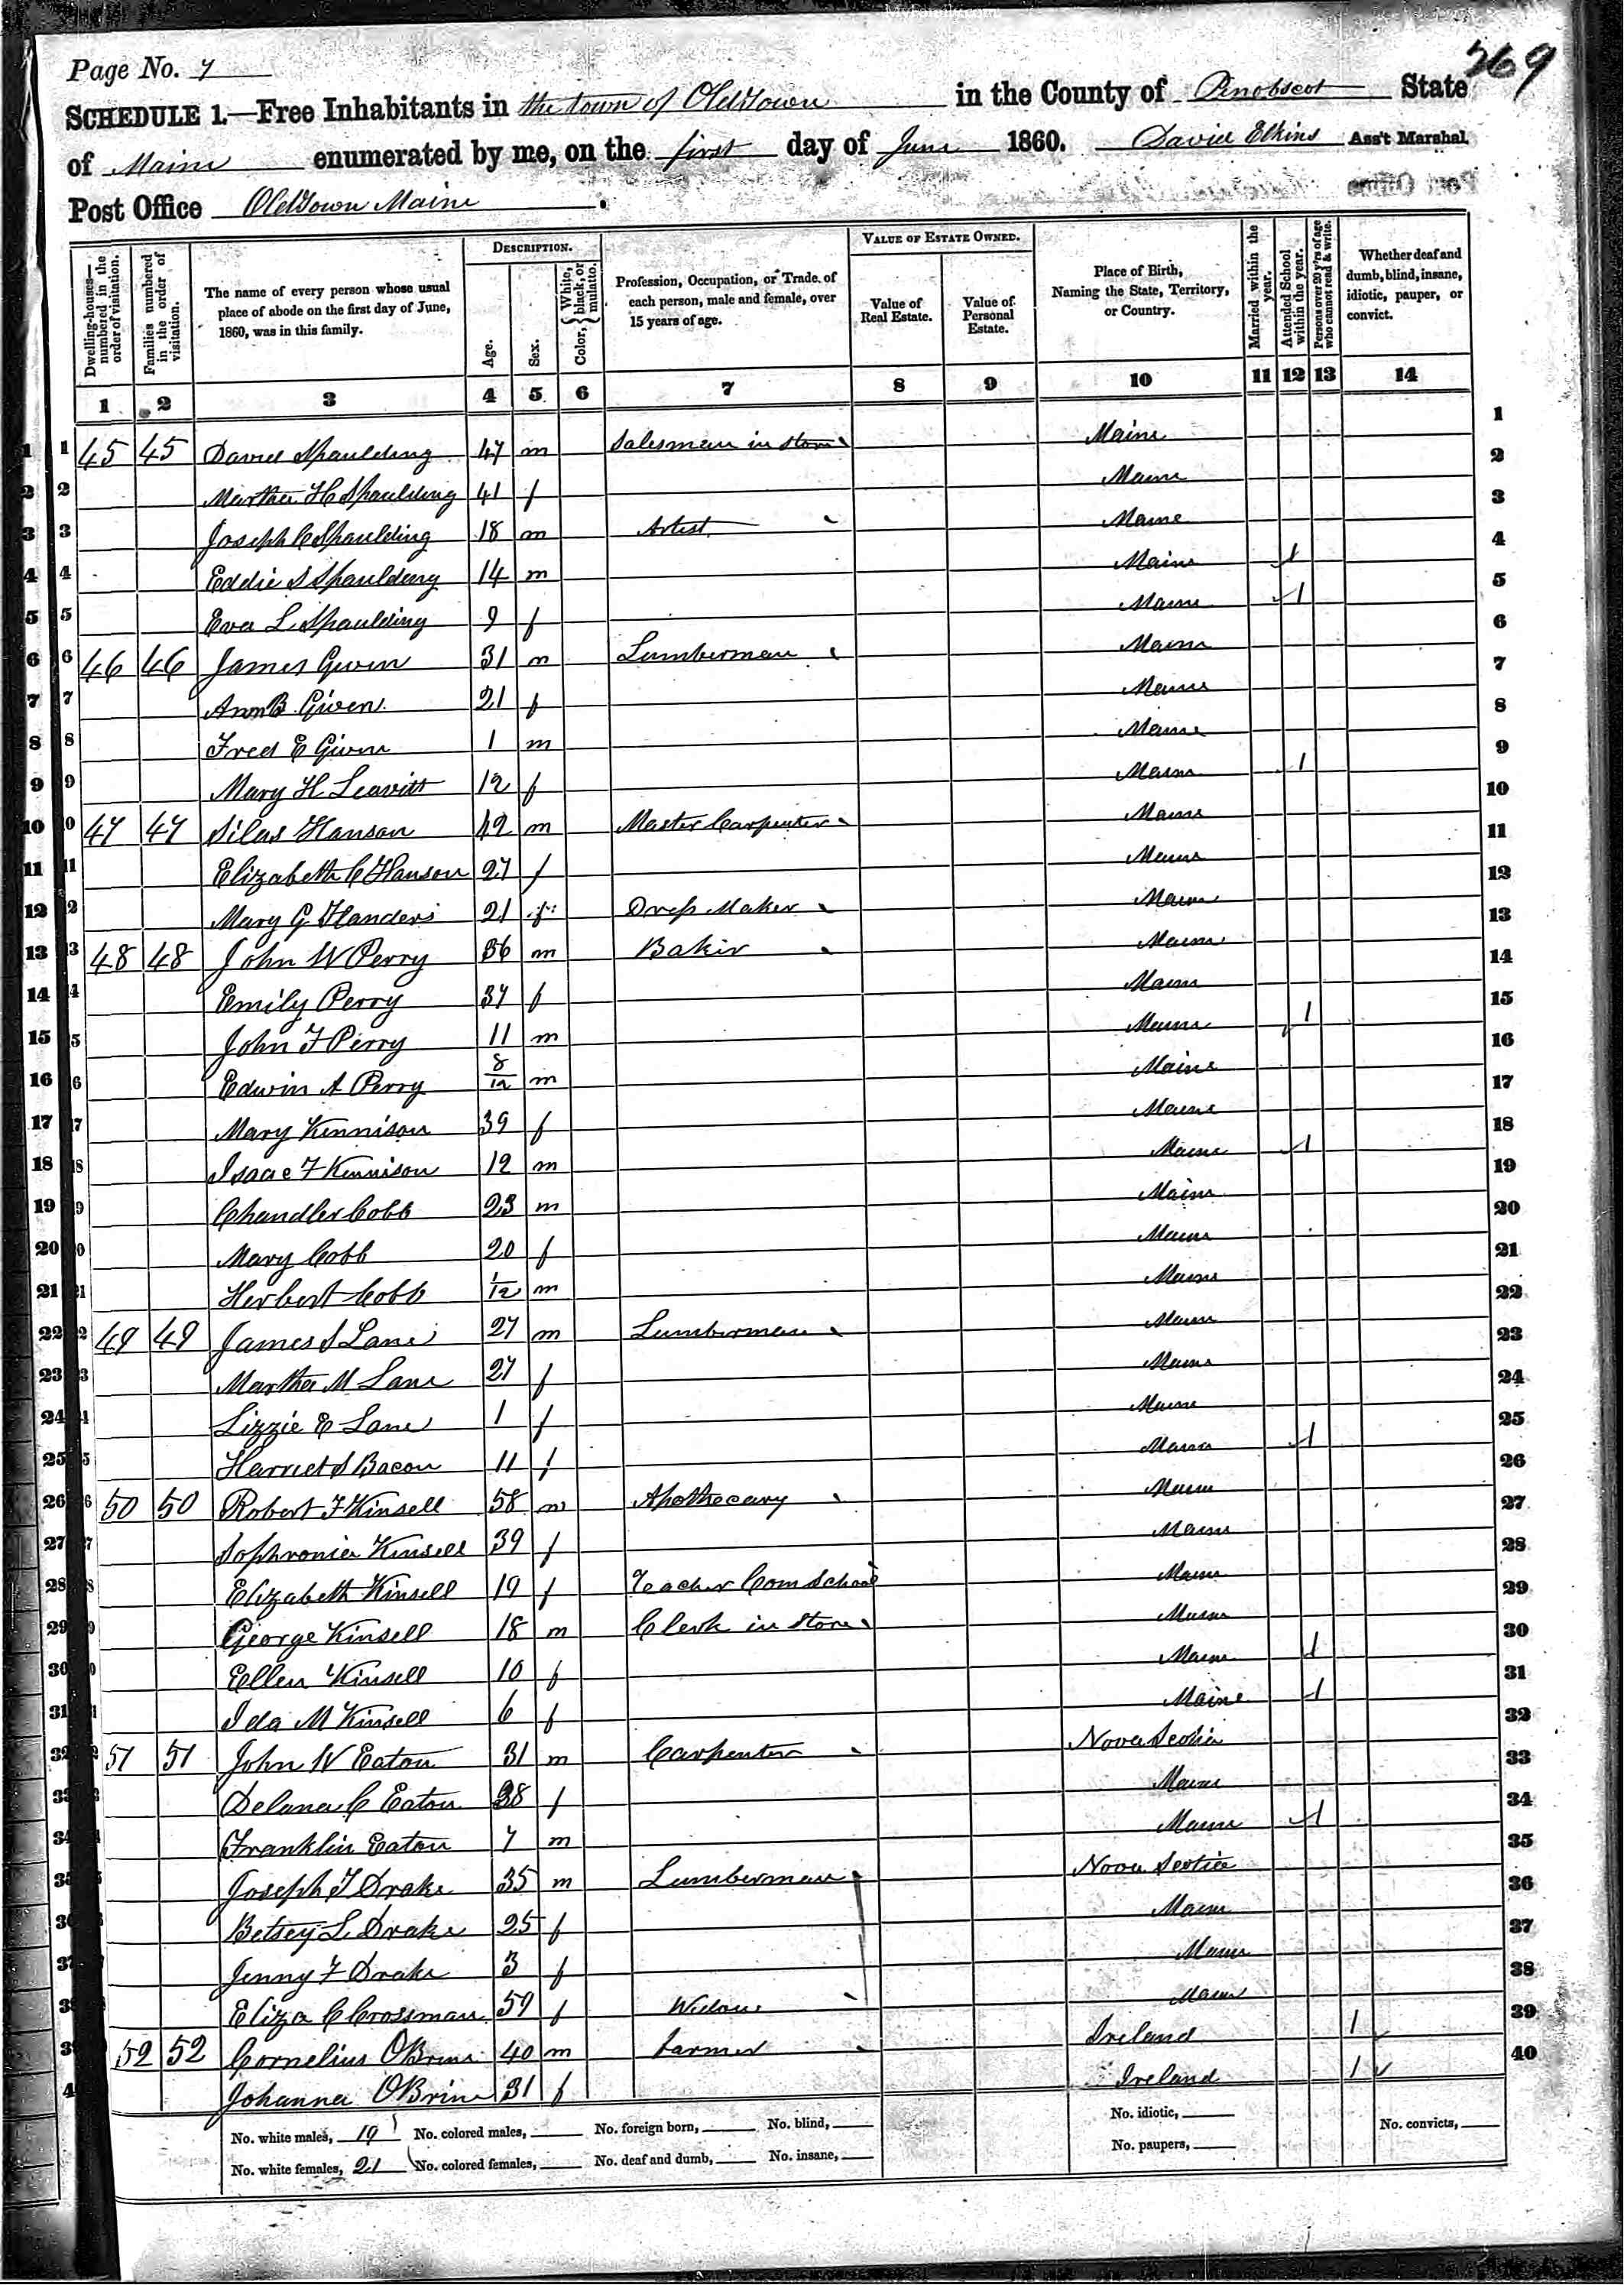 MyFamily.com
Page No. 7
269
SCHEDULE 1.—Free Inhabitants in the town of Oldtown in the County of Penobscot State
of Maine enumerated by me, on the first day of June 1860. David Elkins Ass't Marshal.
Post Office Oldtown Maine.
Dwelling-houses—numbered in the order of visitation.
Families numbered in the order of visitation.
The name of every person whose usual place of abode on the first day of June, 1860, was in this family.
DESCRIPTION.
Age.
Sex.
Color, { White, black, or mulatto.
Profession, Occupation, or Trade of each person, male and female, over 15 years of age.
VALUE OF ESTATE OWNED.
Value of Real Estate.
Value of Personal Estate.
Place of Birth, Naming the State, Territory, or Country.
Married within the year.
Attended School within the year.
Persons over 20 y'rs of age who cannot read & write.
Whether deaf and dumb, blind, insane, idiotic, pauper, or convict.
1 2 3 4 5 6 7 8 9 10 11 12 13 14
1 45 45 David Spaulding 47 m Salesman in store Maine
2 Martha H Spaulding 41 f Maine
3 Joseph C Spaulding 18 m Artist Maine
4 Eddie S Spaulding 14 m Maine 1
5 Eva L Spaulding 9 f Maine 1
6 46 46 James Given 31 m Lumberman Maine
7 Ann B Given 21 f Maine
8 Fred E Given 1 m Maine
9 Mary H Leavitt 12 f Maine 1
10 47 47 Silas Hanson 42 m Master Carpenter Maine
11 Elizabeth C Hanson 27 f Maine
12 Mary G Flanders 21 f Dress Maker Maine
13 48 48 John W Perry 36 m Baker Maine
14 Emily Perry 37 f Maine
15 John F Perry 11 m Maine 1
16 Edwin A Perry 8/12 m Maine
17 Mary Kennison 39 f Maine
18 Isaac F Kennison 12 m Maine 1
19 Chandler Cobb 23 m Maine
20 Mary Cobb 20 f Maine
21 Herbert Cobb 1/12 m Maine
22 49 49 James S Lane 27 m Lumberman Maine
23 Martha M Lane 27 f Maine
24 Lizzie E Lane 1 f Maine
25 Harriet S Bacon 11 f Maine 1
26 50 50 Robert F Kinsell 58 m Apothecary Maine
27 Sophronia Kinsell 39 f Maine
28 Elizabeth Kinsell 19 f Teacher Com School Maine
29 George Kinsell 18 m Clerk in store Maine
30 Ellen Kinsell 10 f Maine 1
31 Ida M Kinsell 6 f Maine 1
32 51 51 John W Eaton 31 m Carpenter Nova Scotia
33 Delana C Eaton 38 f Maine
34 Franklin Eaton 7 m Maine 1
35 Joseph F Drake 35 m Lumberman Nova Scotia
36 Betsey L Drake 25 f Maine
37 Jenny F Drake 3 f Maine
38 Eliza C Crossman 59 f Widow Maine
39 52 52 Cornelius OBrine 40 m Farmer Ireland 1
40 Johanna OBrine 31 f Ireland 1
No. white males, 19 No. colored males, No. foreign born, No. blind, No. idiotic, No. convicts,
No. white females, 21 No. colored females, No. deaf and dumb, No. insane, No. paupers,